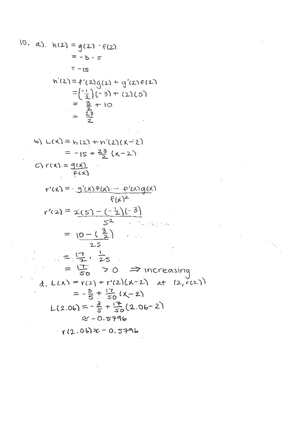 10. a). h(2) = g(2) · f(2)
= -3 · 5
= -15
h'(2) = f'(2)g(2) + g'(2)f(2)
= (-1/2)(-3) + (2)(5)
= 3/2 + 10
= 23/2
b) L(x) = h(2) + h'(2)(x-2)
= -15 + 23/2 (x-2)
c) r(x) = g(x)/f(x)
r'(x) = g'(x)f(x) - f'(x)g(x) / f(x)²
r'(2) = 2(5) - (-1/2)(-3) / 5²
= 10 - (3/2) / 25
= 17/2 · 1/25
= 17/50 > 0 ⇒ increasing
d. L(x) = r(2) + r'(2)(x-2) at (2, r(2))
= -3/5 + 17/50 (x-2)
L(2.06) = -3/5 + 17/50 (2.06-2)
≈ -0.5796
r(2.06) ≈ -0.5796